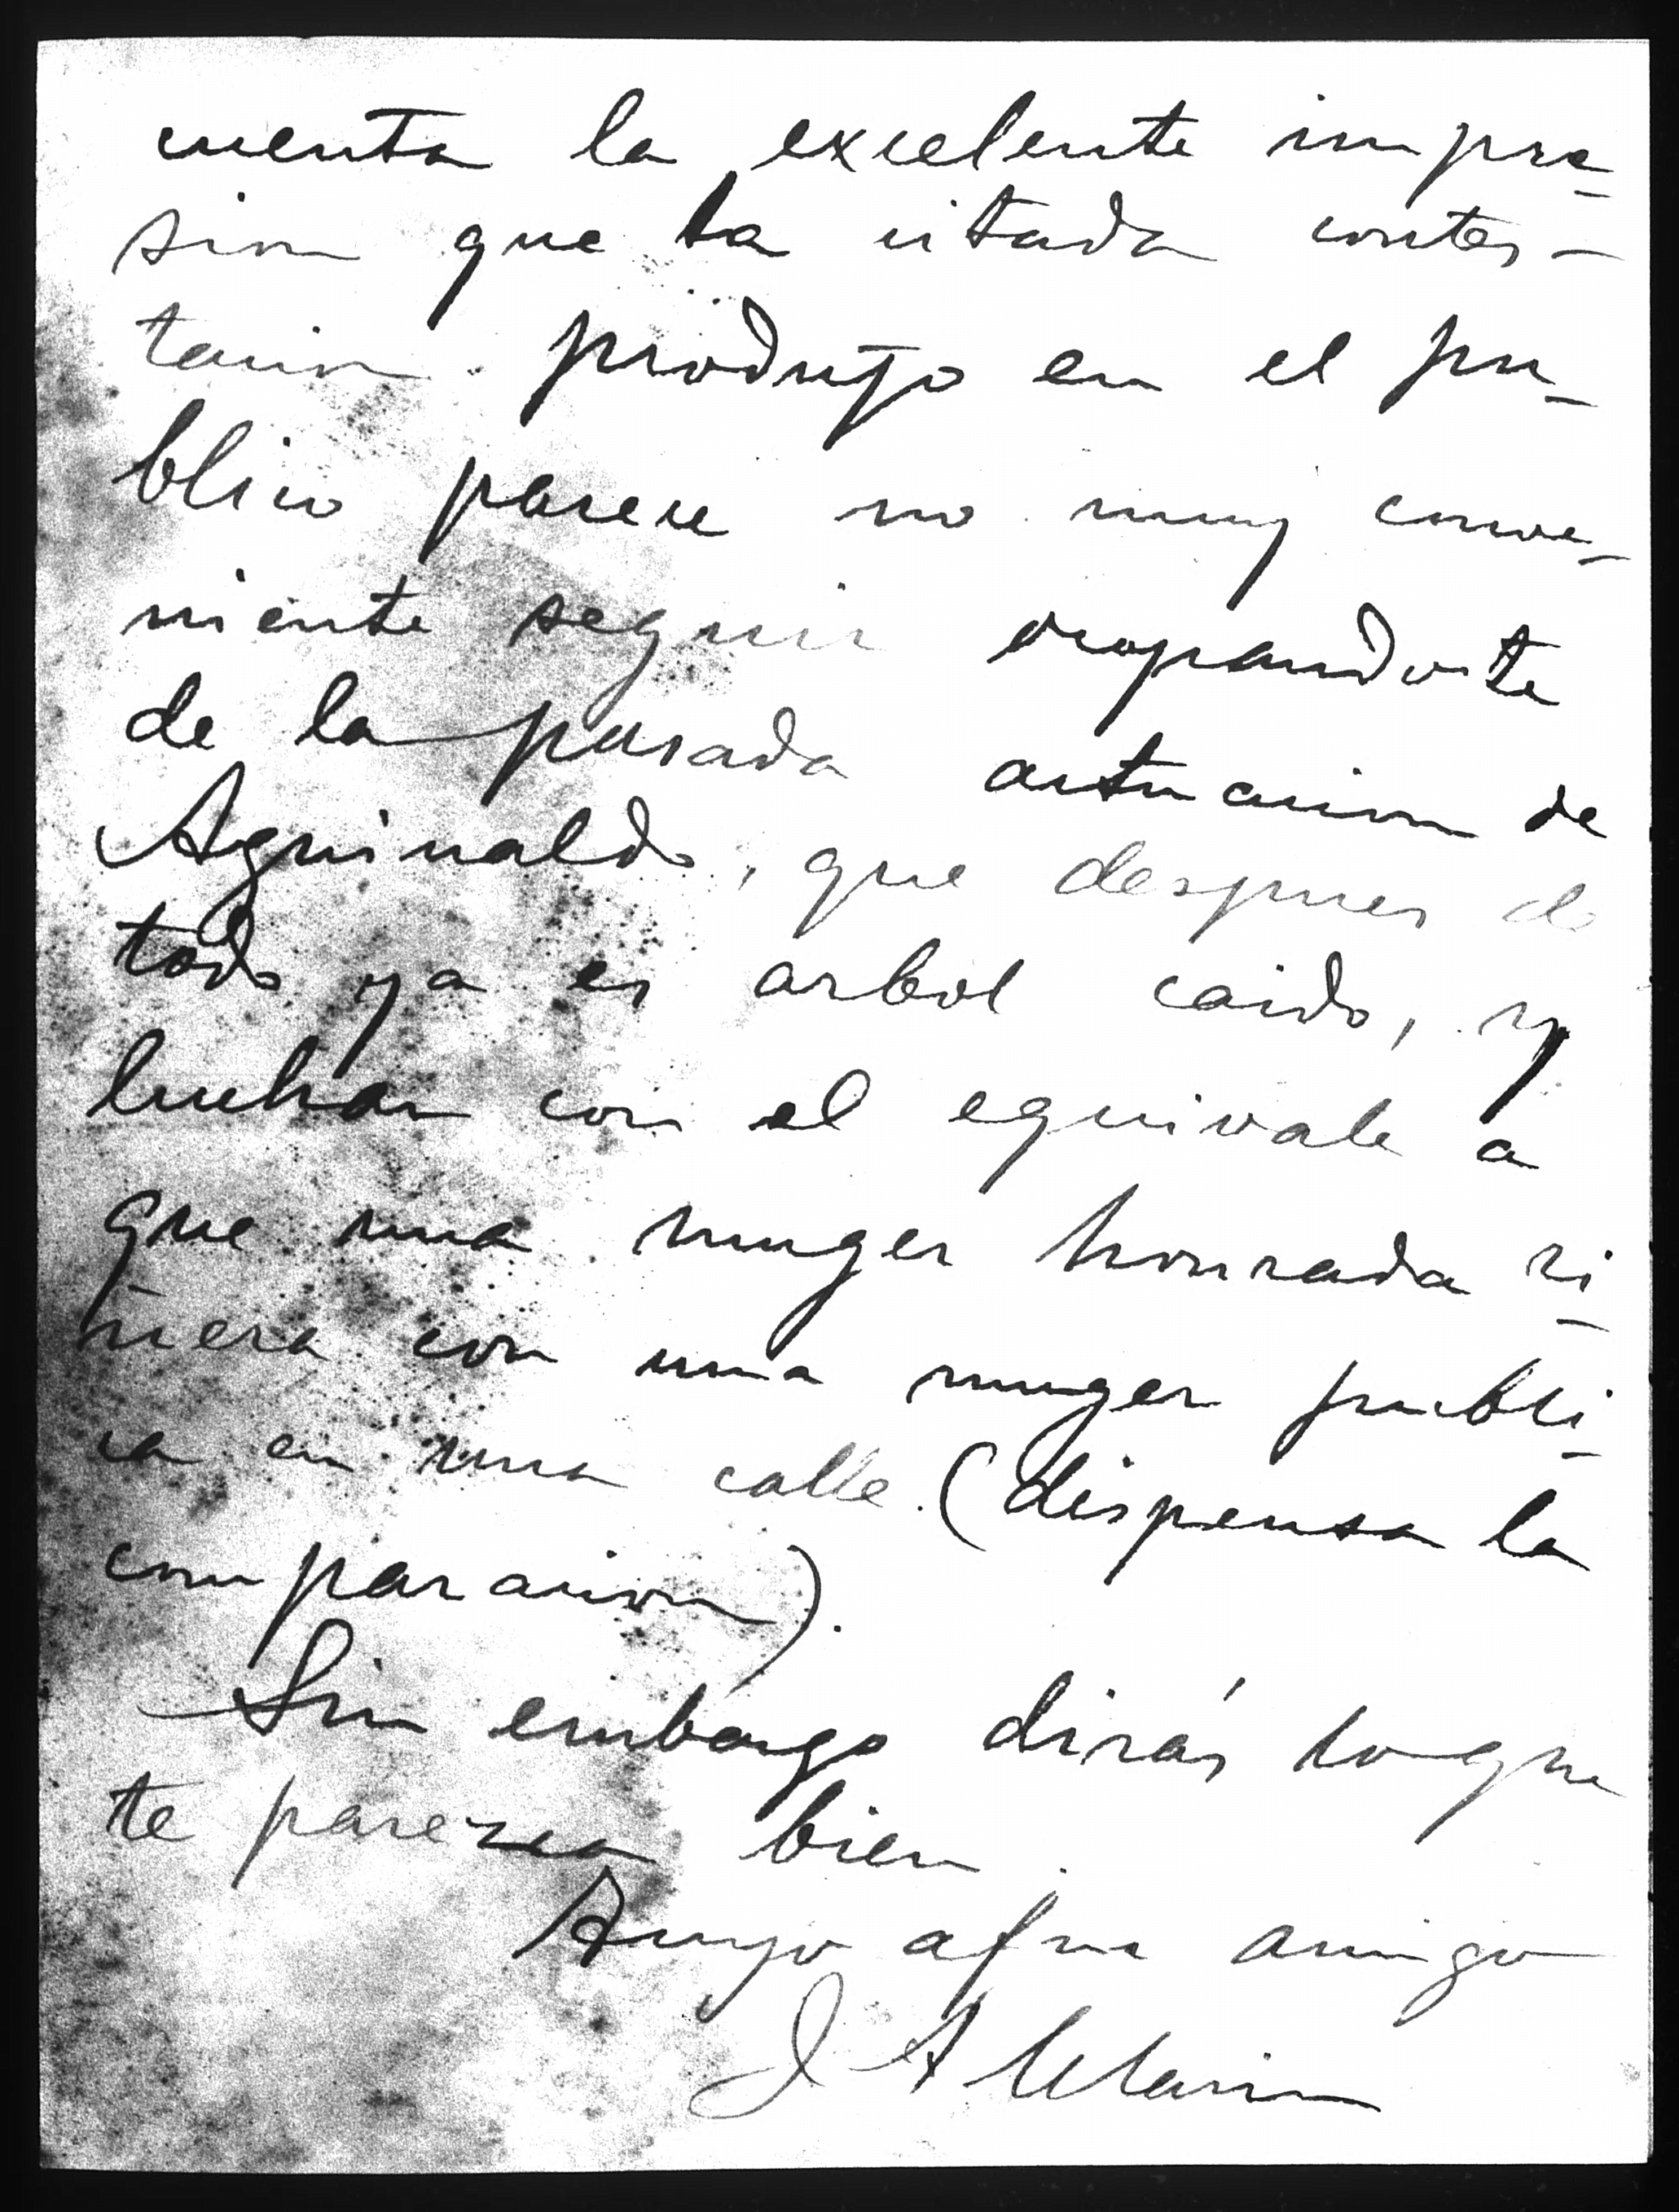 cuenta la excelente impre-
sion que la citada contes-
tacion produjo en el pu-
blico parece no muy conve-
niente seguir ocupandote
de la pasada actuacion de
Aguinaldo, que despues de
todo ya es arbol caido, y
luchar con el equivale a
que una muger honrada ri-
ñera con una muger publi-
ca en una calle (dispensa la
comparacion).
Sin embargo dirás lo que
te parezca bien.
Suyo afmo amigo
J A